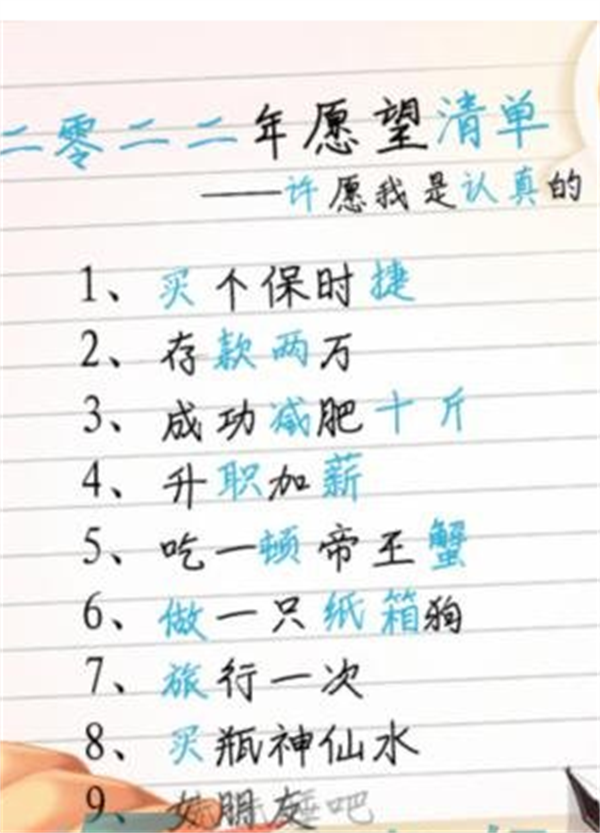 二零二二年愿望清单
——许愿我是认真的
1、买个保时捷
2、存款两万
3、成功减肥十斤
4、升职加薪
5、吃一顿帝王蟹
6、做一只纸箱狗
7、旅行一次
8、买瓶神仙水
9、女朋友吧